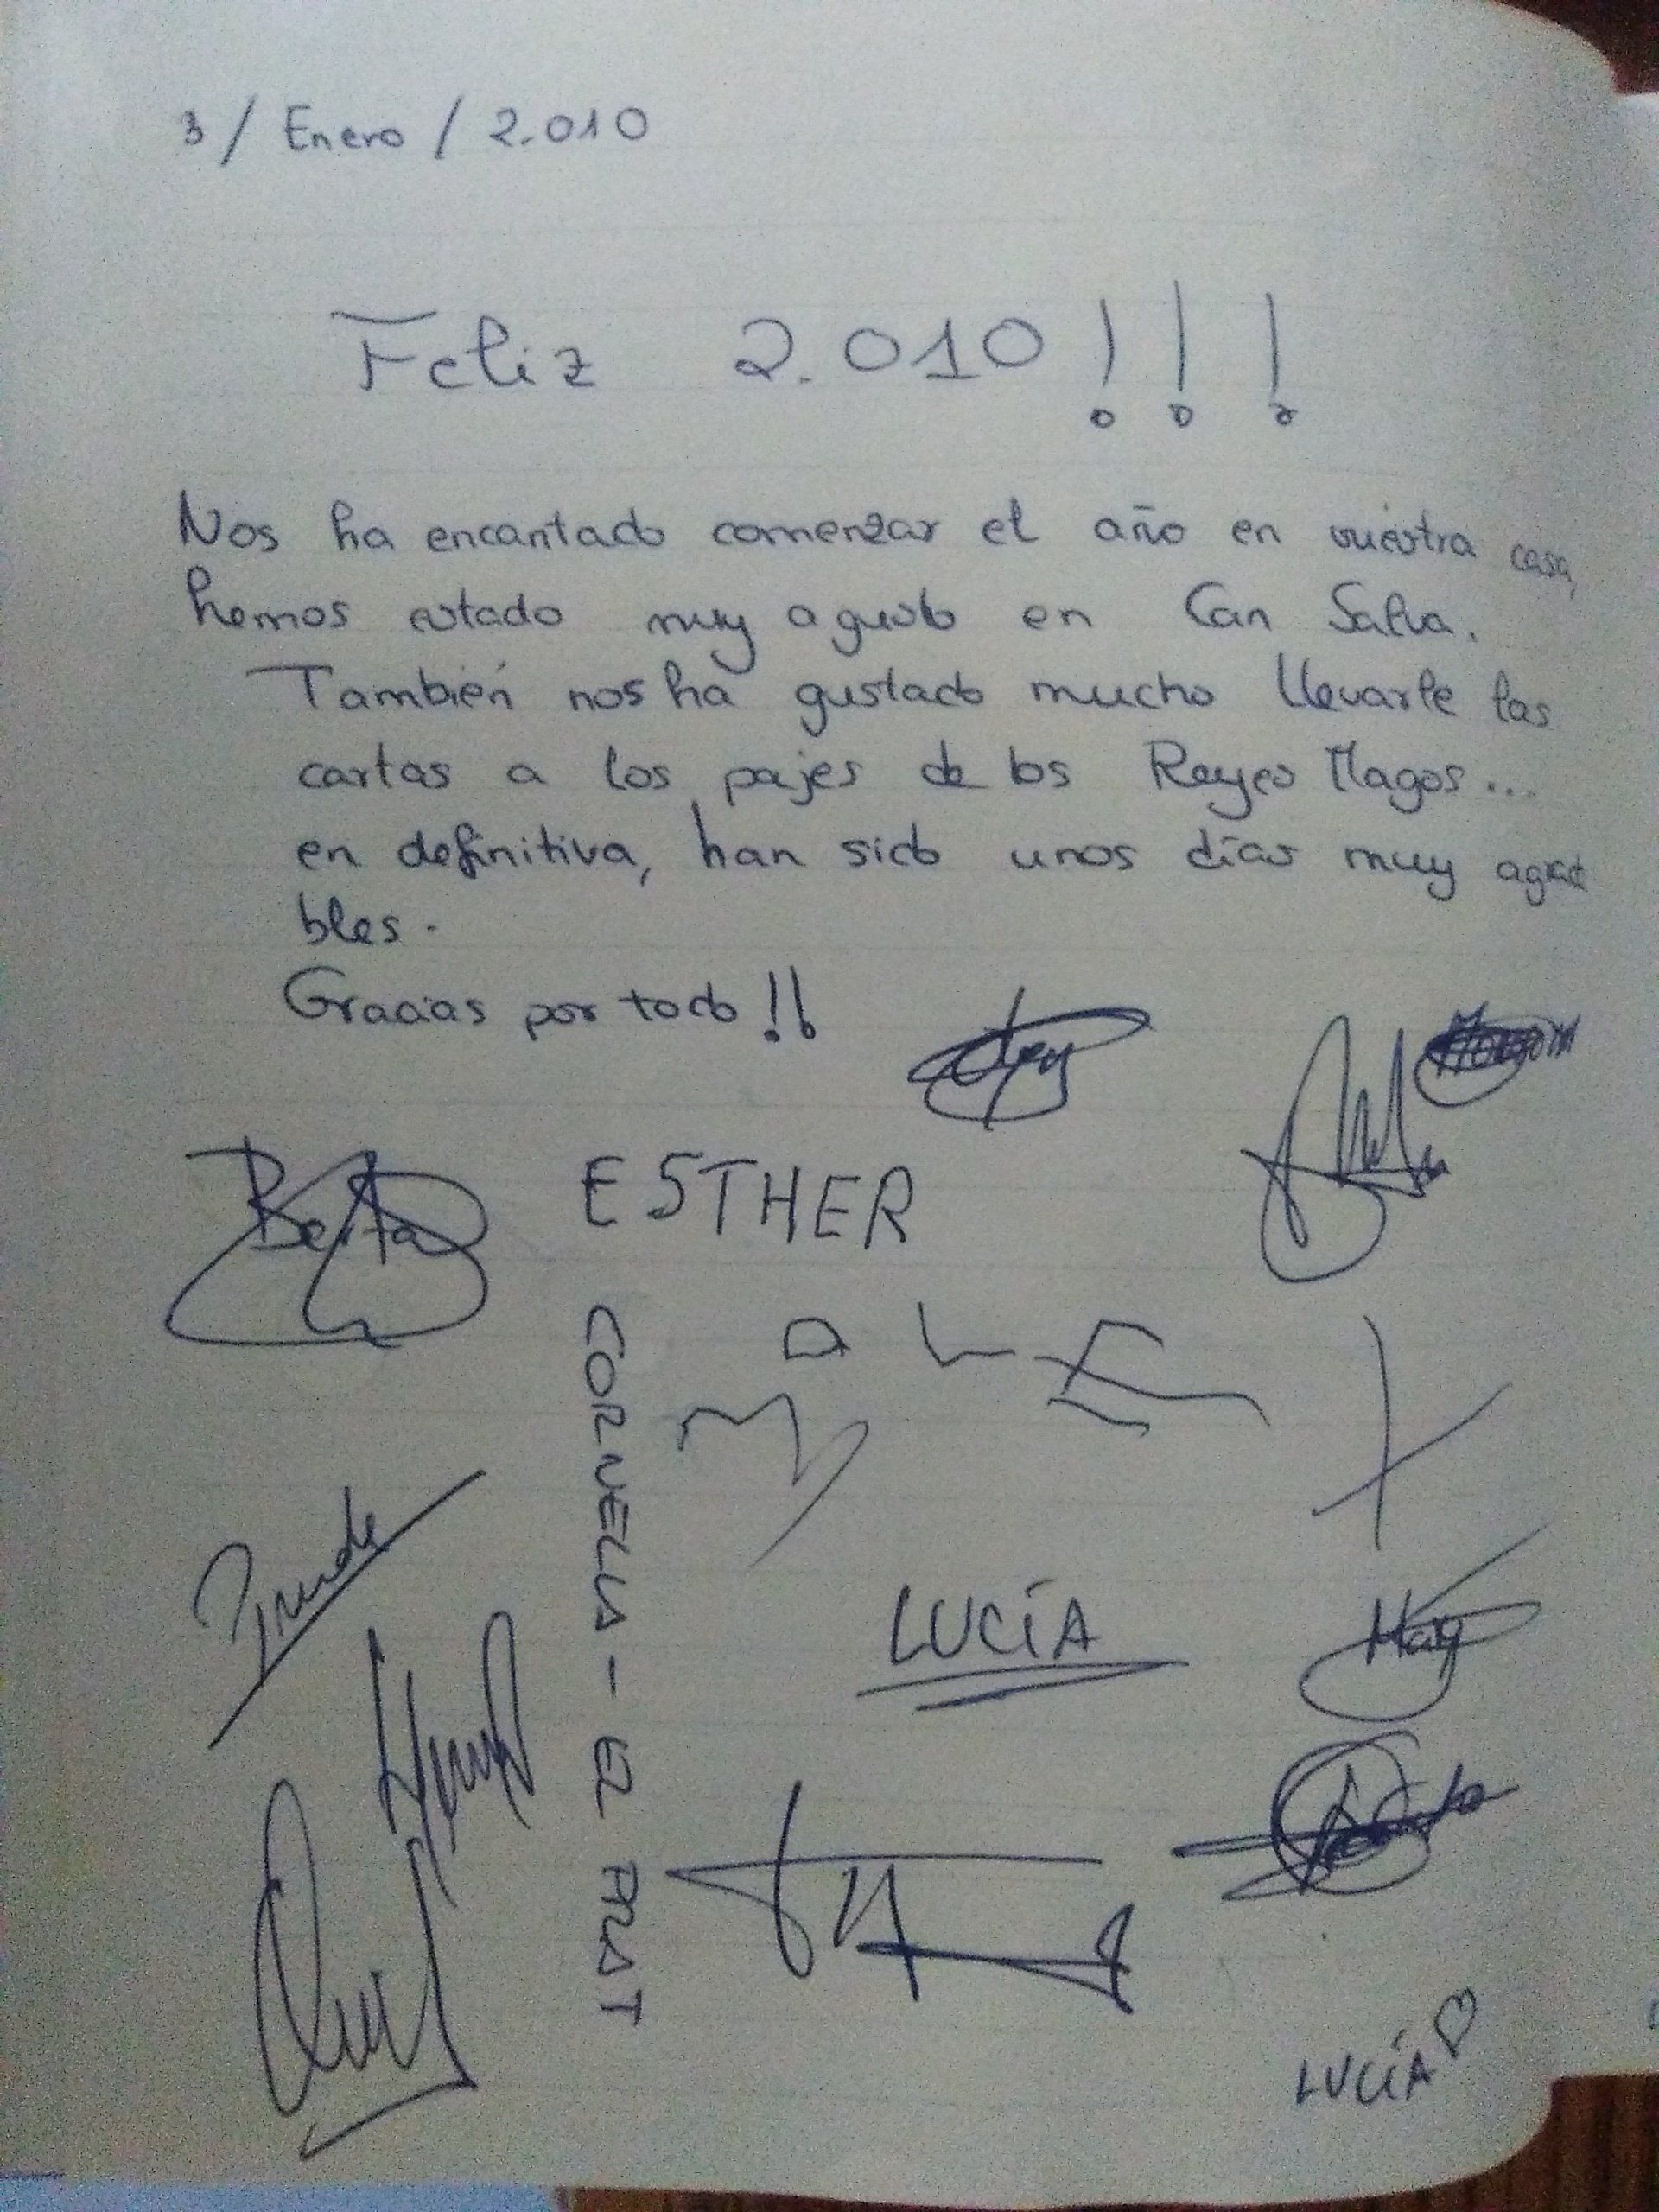 3 / Enero / 2.010
Feliz 2.010!!!
Nos ha encantado comenzar el año en vuestra casa,
hemos estado muy agusto en Can Salva.
También nos ha gustado mucho llevarle las
cartas a los pajes de los Reyes Magos...
en definitiva, han sido unos días muy agrada
bles.
Gracias por todo!!
Berta
ESTHER
ALEX
CORNELLA - EL PRAT
LUCÍA
LUCÍA